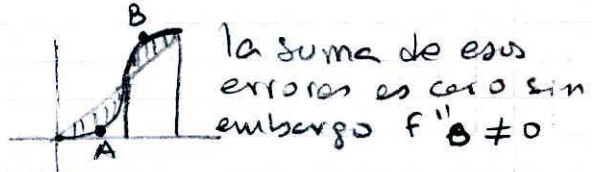 B
la suma de esos
errores es cero sin
embargo f''B ≠ 0
A